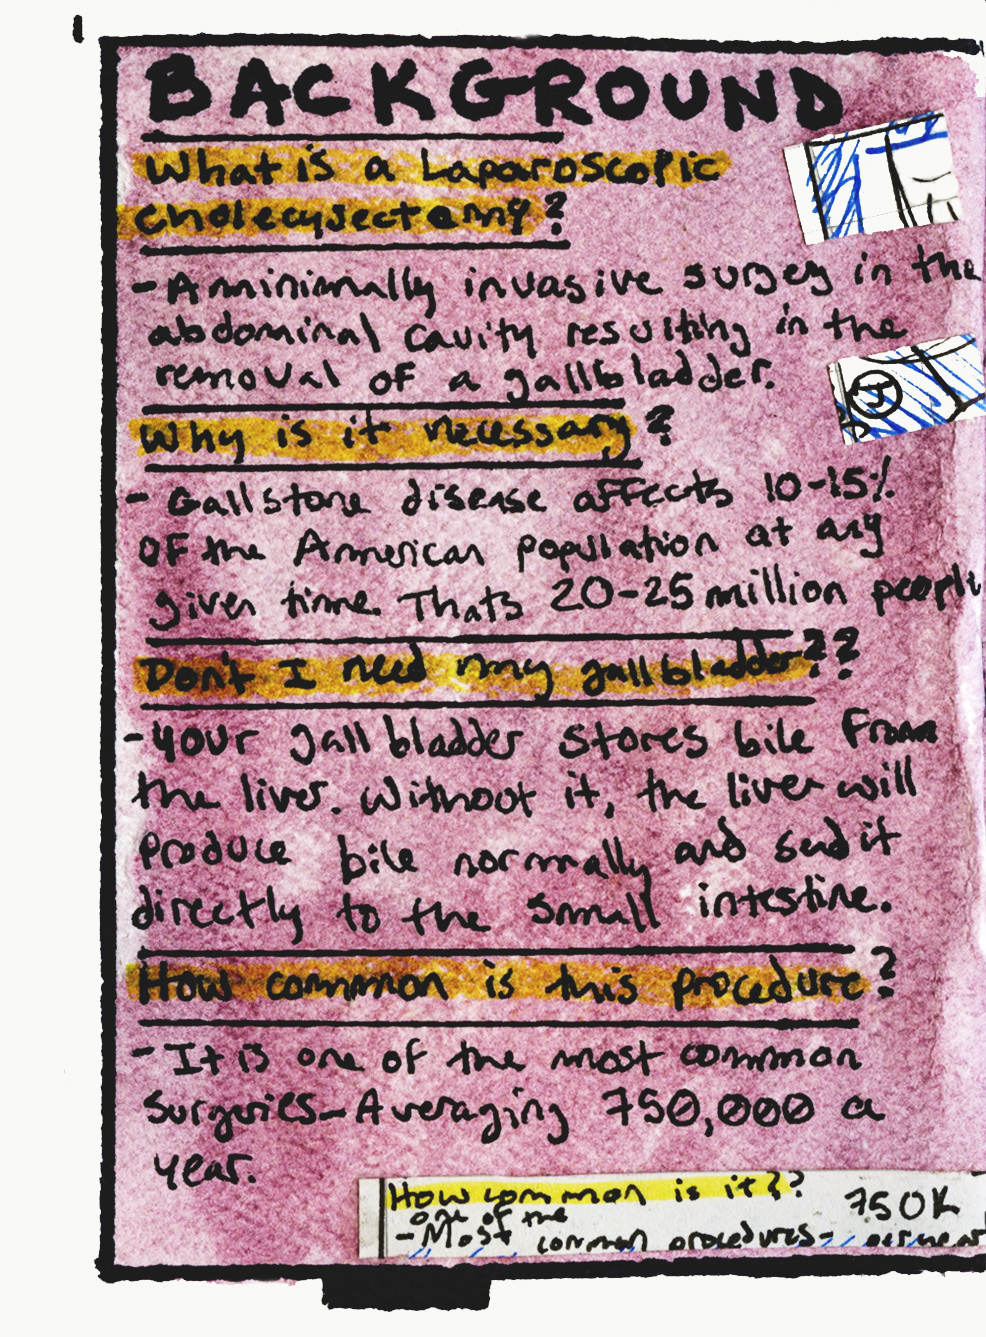 BACKGROUND
What is a Laparoscopic
Cholecysectomy?
- A minimally invasive surgey in the
abdominal cavity resulting in the
removal of a gallbladder.
Why is it necessary?
- Gallstone disease affects 10-15%
of the American population at any
given time. Thats 20-25 million people
Don't I need my gallbladder??
- Your gallbladder stores bile from
the liver. Without it, the liver will
produce bile normally and send it
directly to the small intestine.
How common is this procedure?
- It is one of the most common
surguries - Averaging 750,000 a
year.
How common is it?? 750K
one of the
- Most common procedures -